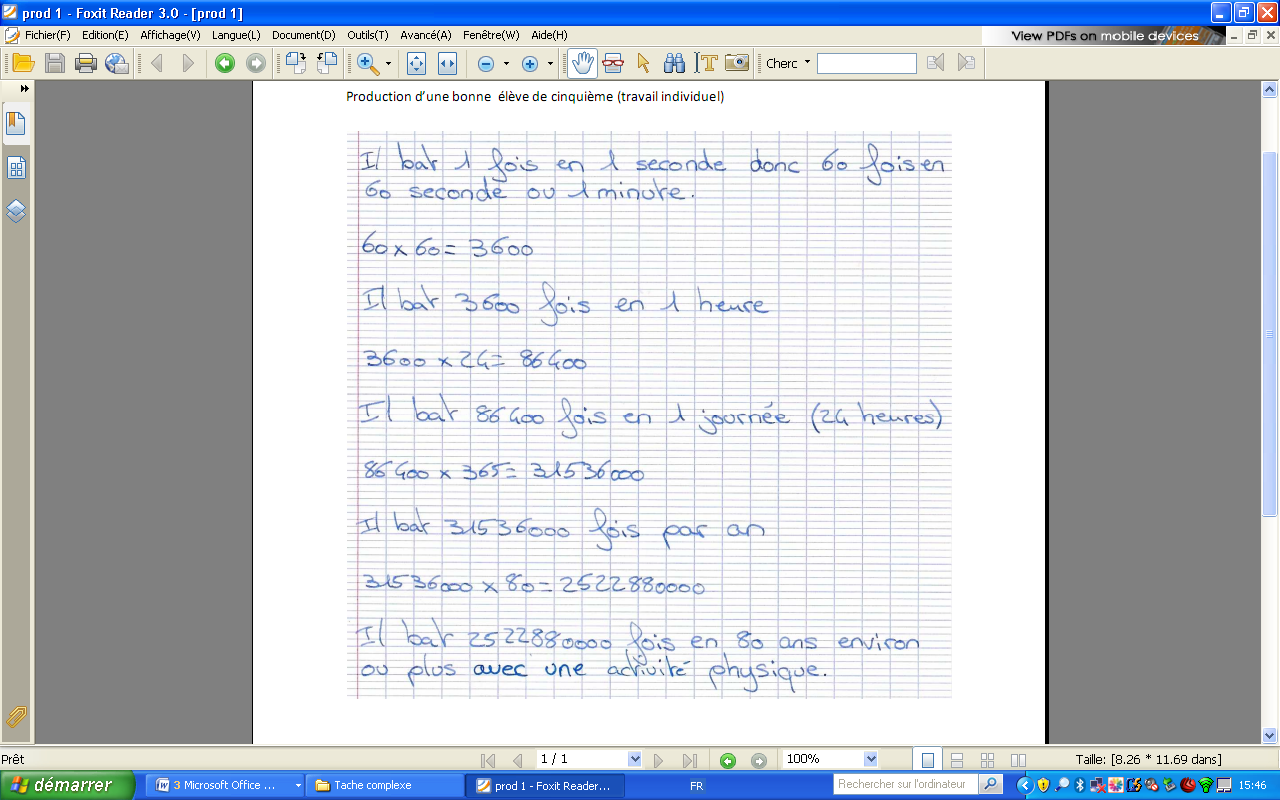 prod 1 - Foxit Reader 3.0 - [prod 1]
Fichier(F) Edition(E) Affichage(V) Langue(L) Document(D) Outils(T) Avancé(A) Fenêtre(W) Aide(H)
View PDFs on mobile devices
Cherc
Production d'une bonne élève de cinquième (travail individuel)
Il bat 1 fois en 1 seconde donc 60 fois en
60 seconde ou 1 minute.
60 x 60 = 3600
Il bat 3600 fois en 1 heure
3600 x 24 = 86400
Il bat 86400 fois en 1 journée (24 heures)
86400 x 365 = 31536000
Il bat 31536000 fois par an
31536000 x 80 = 2522880000
Il bat 2522880000 fois en 80 ans environ
ou plus avec une activité physique.
Prêt
1 / 1
100%
Taille: [8.26 * 11.69 dans]
démarrer
3 Microsoft Office ...
Tache complexe
prod 1 - Foxit Reader...
FR
Rechercher sur l'ordinateur
15:46